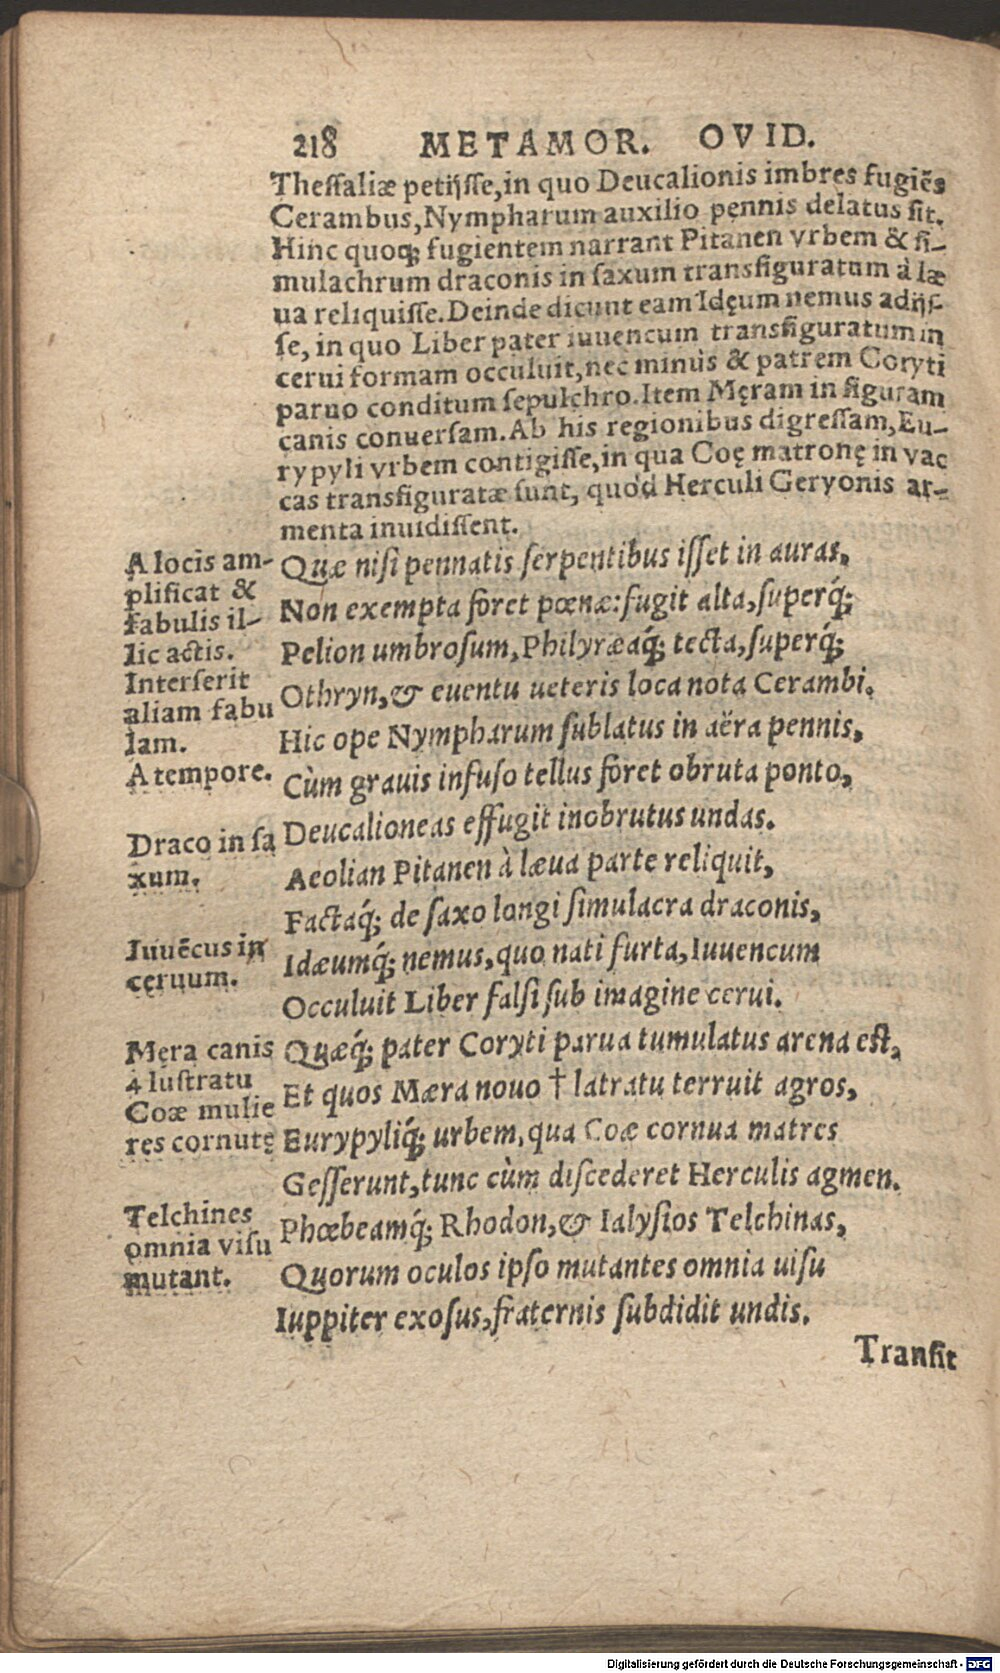 218 METAMOR. OVID.
Thessaliæ petijsse, in quo Deucalionis imbres fugiẽs
Cerambus, Nympharum auxilio pennis delatus sit.
Hinc quoq; fugientem narrant Pitanen vrbem & si-
mulachrum draconis in saxum transfiguratum à læ
ua reliquisse. Deinde dicunt eam Idęum nemus adijs-
se, in quo Liber pater iuuencum transfiguratum in
cerui formam occuluit, nec minus & patrem Coryti
paruo conditum sepulchro. Item Męram in figuram
canis conuersam. Ab his regionibus digressam, Eu-
rypyli vrbem contigisse, in qua Coę matronę in vac
cas transfiguratæ sunt, quòd Herculi Geryonis ar-
menta inuidissent.
A locis am-
plificat &
fabulis il-
lic actis.
Interserit
aliam fabu
lam.
A tempore.
Draco in sa
xum.
Iuuẽcus in
cęruum.
Męra canis
4 lustratu
Coæ mulie
res cornutę
Telchines
omnia visu
mutant.
Quæ nisi pennatis serpentibus isset in auras,
Non exempta foret pœnæ: fugit alta, superq́;
Pelion umbrosum, Philyræaq́; tecta, superq́;
Othryn, & euentu ueteris loca nota Cerambi.
Hic ope Nympharum sublatus in aëra pennis,
Cùm grauis infuso tellus foret obruta ponto,
Deucalioneas effugit inobrutus undas.
Aeolian Pitanen à læua parte reliquit,
Factaq́; de saxo longi simulacra draconis,
Idæumq́; nemus, quo nati furta, Iuuencum
Occuluit Liber falsi sub imagine cerui.
Quæq́; pater Coryti parua tumulatus arena est,
Et quos Mæra nouo † latratu terruit agros,
Eurypyliq́; urbem, qua Coæ cornua matres
Gesserunt, tunc cùm discederet Herculis agmen.
Phœbeamq́; Rhodon, & Ialysios Telchinas,
Quorum oculos ipso mutantes omnia uisu
Iuppiter exosus, fraternis subdidit undis.
Transit
Digitalisierung gefördert durch die Deutsche Forschungsgemeinschaft - DFG